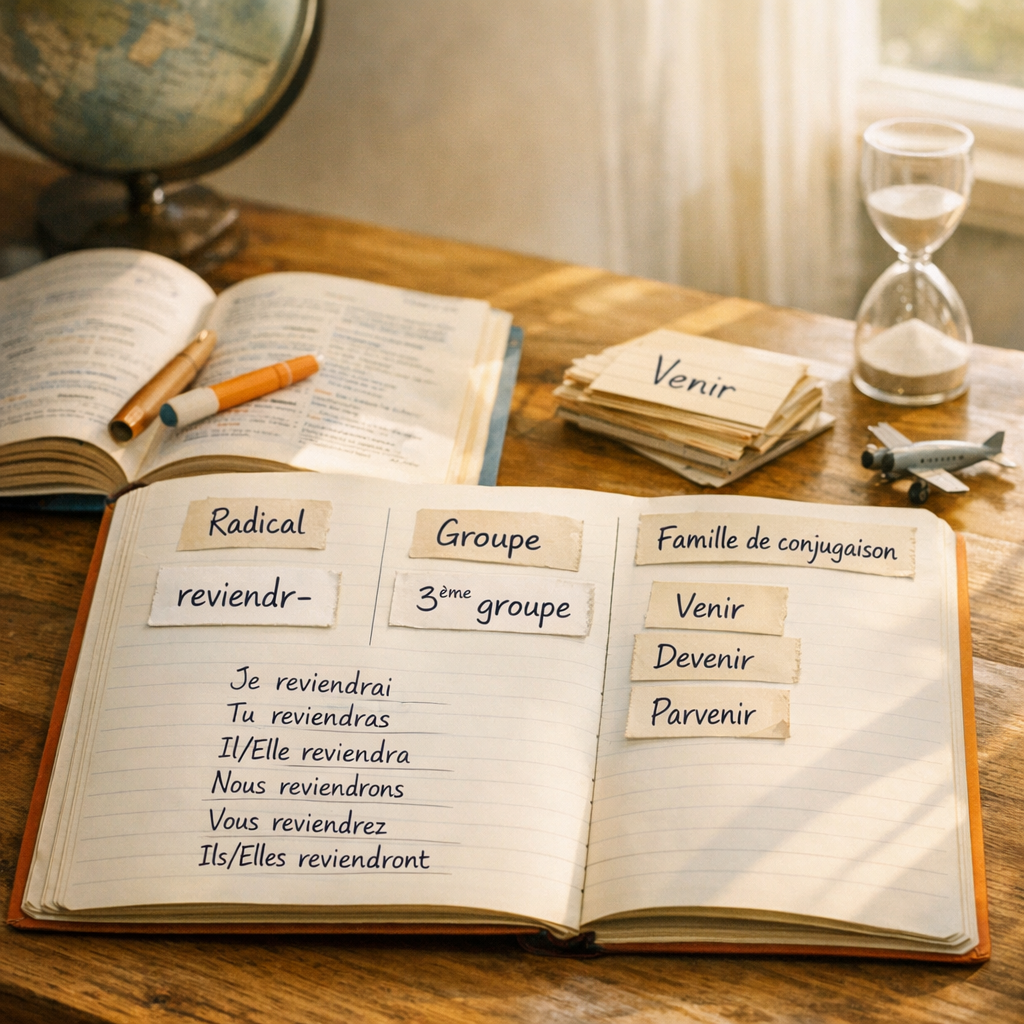 Venir
Radical
Groupe
Famille de conjugaison
reviendr-
3ème groupe
Venir
Devenir
Parvenir
Je reviendrai
Tu reviendras
Il/Elle reviendra
Nous reviendrons
Vous reviendrez
Ils/Elles reviendront